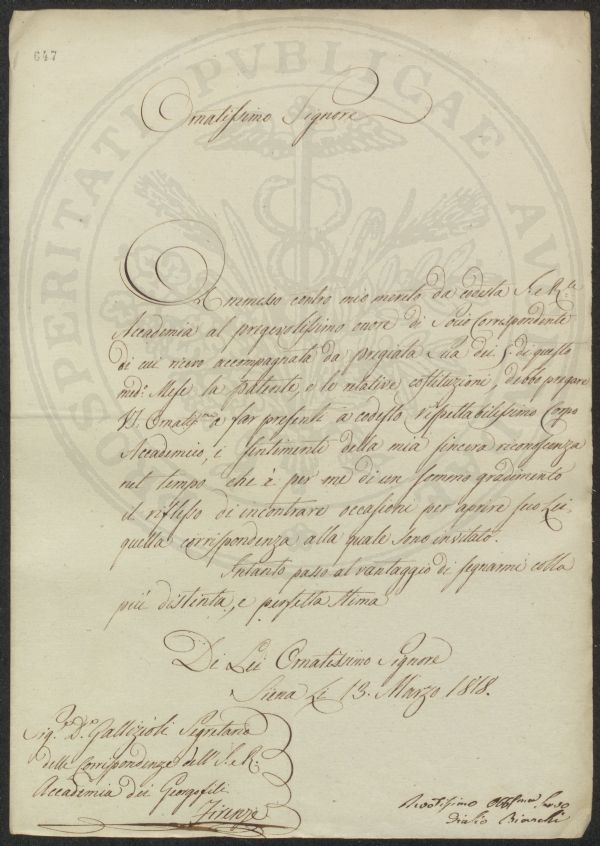 647
PROSPERITATI PVBLICAE AV
Ornatissimo Signore
Ammesso contro mio merito da codesta I. e R.le
Accademia al pregevolissimo onore di Socio Corrispondente
di cui ricevo accompagnata da pregiata Sua dei 5. di questo
med.o Mese la patente, e le relative costituzioni, debbo pregare
VS. Ornatiss.ma a far presenti a codesto rispettabilissimo Corpo
Accademico, i sentimenti della mia sincera riconoscenza
nel tempo che è per me di un sommo gradimento
il riflesso di incontrare occasioni per aprire seco Lei
quella corrispondenza alla quale sono invitato.
Intanto passo al vantaggio di segnarmi colla
più distinta, e perfetta stima
Di Lei Ornatissimo Signore
Siena Li 13. Marzo 1818.
Sig.r D.r Gallizioli Segretario
delle Corrispondenze dell' I. e R.
Accademia dei Georgofili
Firenze
Devotissimo Obb.mo Servo
Bianchi